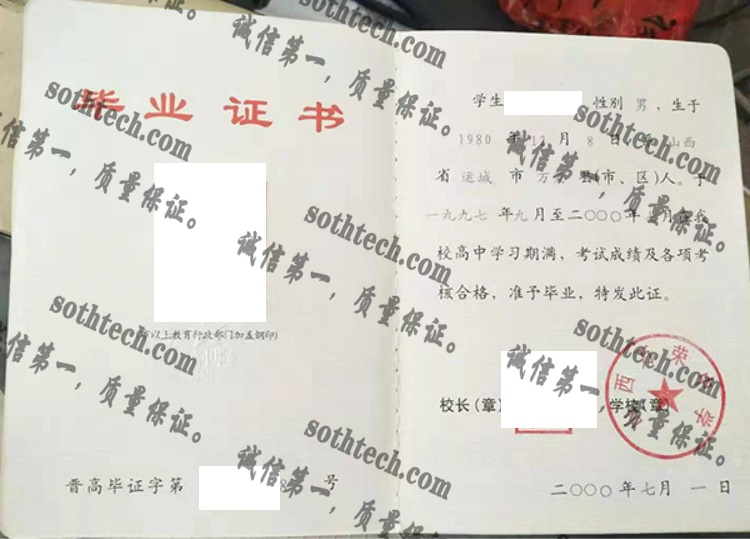 毕业证书
(县以上教育行政部门加盖钢印)
晋高毕证字第 8 号
学生 性别 男，生于
1980 年 11 月 8 日 山西
省 运城 市 万 县(市、区)人。于
一九九七 年九月至二〇〇〇年 月在我
校高中学习期满，考试成绩及各项考
核合格，准予毕业，特发此证。
校长(章) ，学校(章)
西 荣 学
二〇〇〇年七月一日
sothtech.com
诚信第一，质量保证。
sothtech.com
诚信第一，质量保证。
sothtech.com
诚信第一，质量保证。
sothtech.com
诚信第一，质量保证。
sothtech.com
诚信第一，质量保证。
sothtech.com
诚信第一，质量保证。